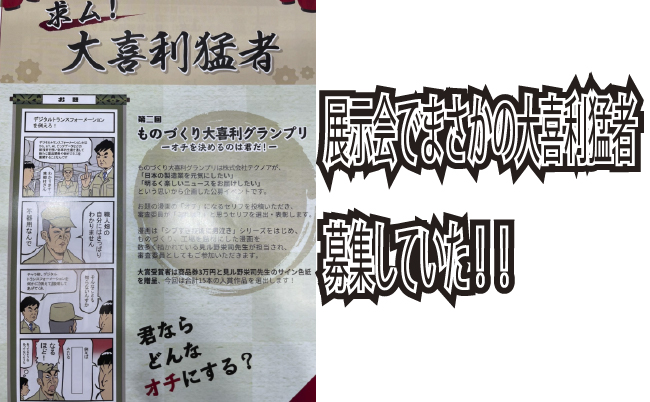 求ム!
大喜利猛者
お題
デジタルトランスフォーメーション
を例えろ!
職人畑の
自分にはさっぱり
わかりません
不器用なんで
なる
ほど!
第二回
ものづくり大喜利グランプリ
ーオチを決めるのは君だ!ー
ものづくり大喜利グランプリは株式会社テクノアが、
「日本の製造業を元気にしたい」
「明るく楽しいニュースをお届けしたい」
という思いから企画した公募イベントです。
お題の漫画の「オチ」になるセリフを投稿いただき、
審査委員が
セリフを選出・表彰します。
漫画は「シブすぎ技術に男泣き」シリーズをはじめ、
ものづくり・工場を題材にした漫画を
数多く描かれている見ル野栄司先生が担当され、
審査委員としてもご参加いただきます。
大賞受賞者は商品券3万円と見ル野栄司先生のサイン色紙
を贈呈、今回は合計15本の入賞作品を選出します!
君なら
どんな
オチにする?
展示会でまさかの大喜利猛者
募集していた!!